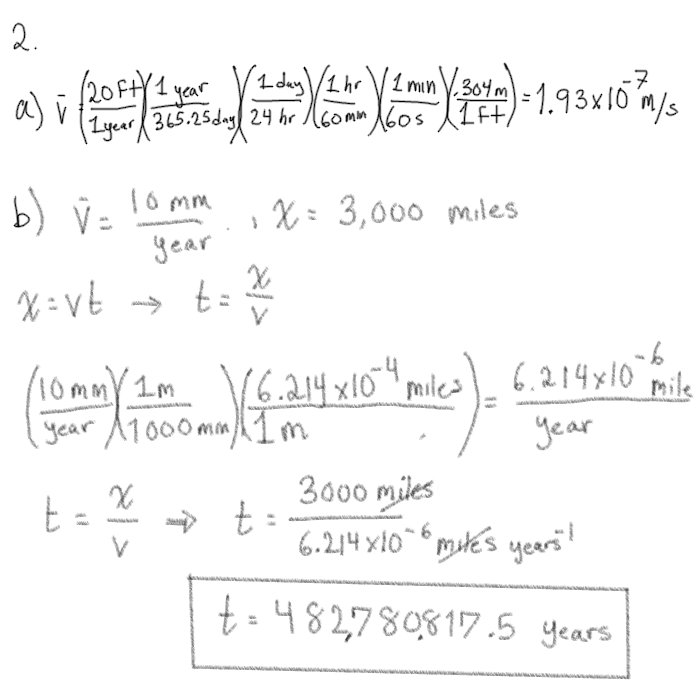 2.
a) v̄ (20 Ft / 1 year)(1 year / 365.25 day)(1 day / 24 hr)(1 hr / 60 min)(1 min / 60 s)(.304 m / 1 Ft) = 1.93 x 10^-7 m/s
b) v̄ = 10 mm / year . , x = 3,000 miles
x = vt → t = x / v
(10 mm / year)(1 m / 1000 mm)(6.214 x 10^-4 miles / 1 m) = 6.214 x 10^-6 mile / year
t = x / v ⇒ t = 3000 miles / 6.214 x 10^-6 miles years^-1
t = 482,780,817.5 years